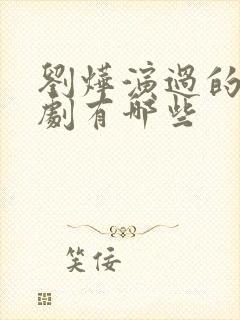 劉燁演過的
劇有哪些
笑佞